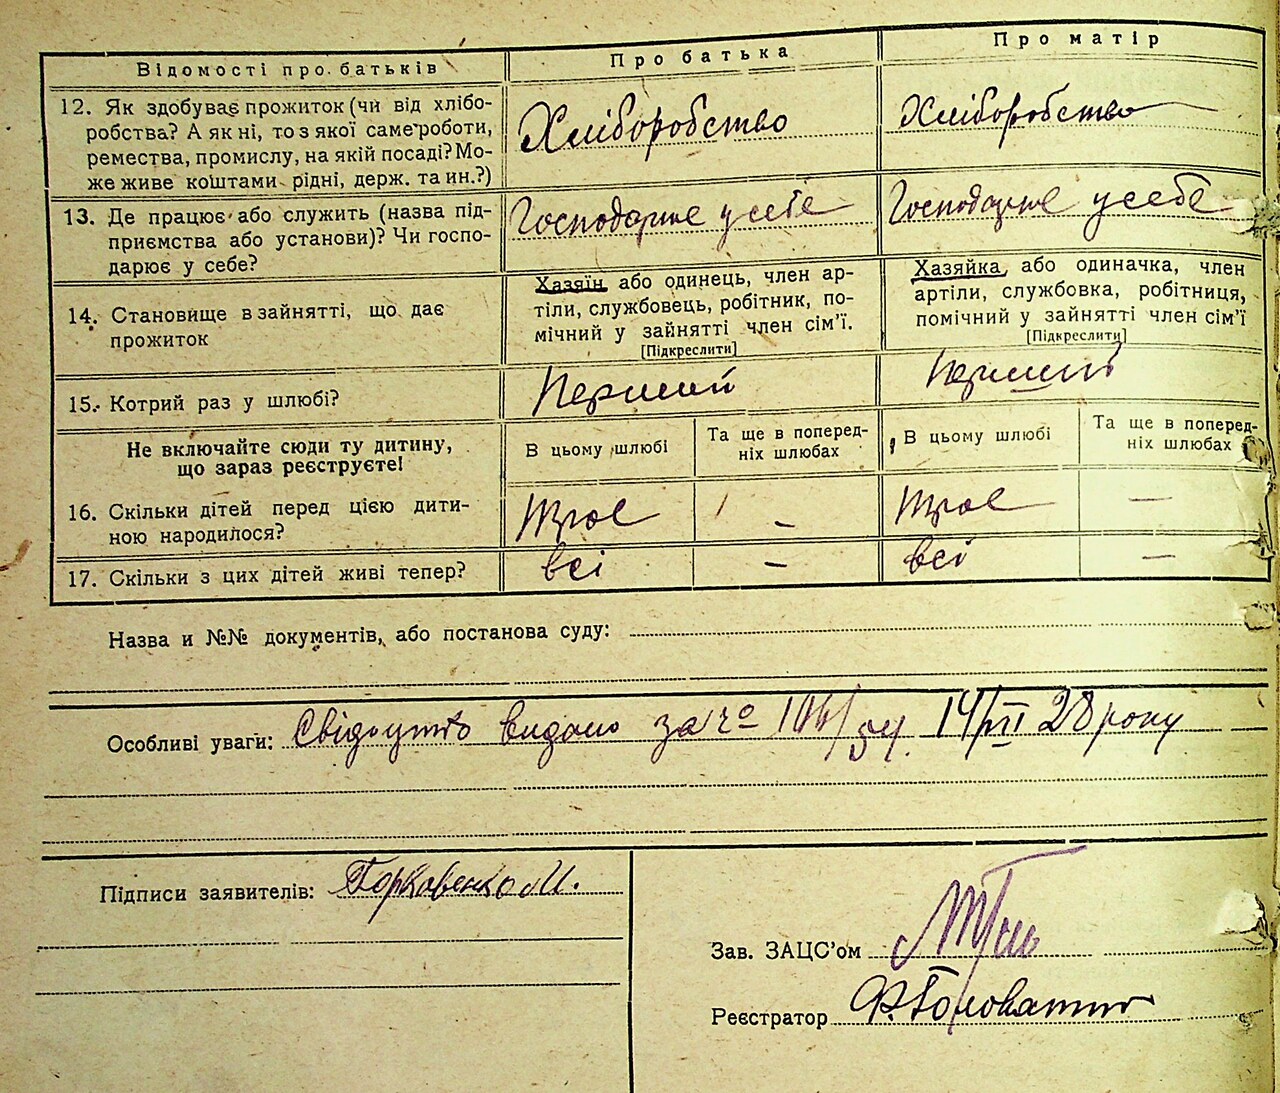 Відомості про батьків
Про батька
Про матір
12. Як здобуває прожиток (чи від хлібо-
робства? А як ні, то з якої саме роботи,
ремества, промислу, на якій посаді? Мо-
же живе коштами рідні, держ. та ин.?)
Хліборобство
Хліборобство
13. Де працює або служить (назва під-
приємства або установи)? Чи госпо-
дарює у себе?
Господарює у себе
Господарює у себе
14. Становище в зайнятті, що дає
прожиток
Хазяїн або одинець, член ар-
тіли, службовець, робітник, по-
мічний у зайнятті член сім'ї.
[Підкреслити]
Хазяйка, або одиначка, член
артіли, службовка, робітниця,
помічний у зайнятті член сім'ї
[Підкреслити]
15. Котрий раз у шлюбі?
Перший
Перший
Не включайте сюди ту дитину,
що зараз реєструєте!
В цьому шлюбі
Та ще в поперед-
ніх шлюбах
В цьому шлюбі
Та ще в поперед-
ніх шлюбах
16. Скільки дітей перед цією дити-
ною народилося?
Троє
–
Троє
–
17. Скільки з цих дітей живі тепер?
всі
–
всі
–
Назва и №№ документів, або постанова суду:
Особливі уваги: Свідоцтво видано за чо 14/III 28 року
Підписи заявителів: Горкавенко И.
Зав. ЗАЦС'ом
Реєстратор